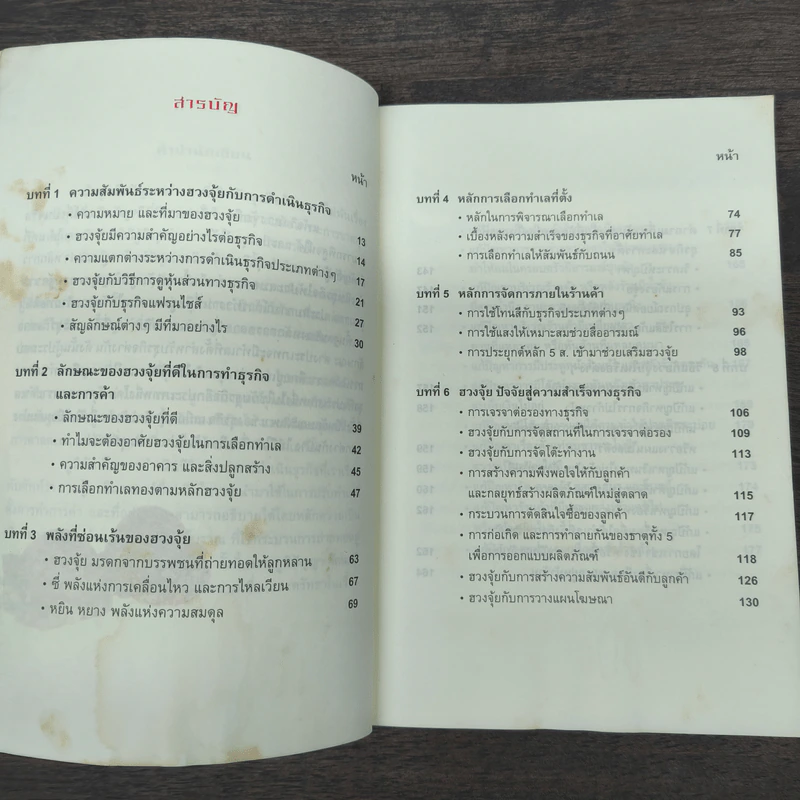 สารบัญ
หน้า
บทที่ 1 ความสัมพันธ์ระหว่างฮวงจุ้ยกับการดำเนินธุรกิจ
• ความหมาย และที่มาของฮวงจุ้ย 13
• ฮวงจุ้ยมีความสำคัญอย่างไรต่อธุรกิจ 14
• ความแตกต่างระหว่างการดำเนินธุรกิจประเภทต่างๆ 17
• ฮวงจุ้ยกับวิธีการดูหุ้นส่วนทางธุรกิจ 21
• ฮวงจุ้ยกับธุรกิจแฟรนไชส์ 27
• สัญลักษณ์ต่างๆ มีที่มาอย่างไร 30
บทที่ 2 ลักษณะของฮวงจุ้ยที่ดีในการทำธุรกิจ
และการค้า
• ลักษณะของฮวงจุ้ยที่ดี 39
• ทำไมจะต้องอาศัยฮวงจุ้ยในการเลือกทำเล 42
• ความสำคัญของอาคาร และสิ่งปลูกสร้าง 45
• การเลือกทำเลทองตามหลักฮวงจุ้ย 47
บทที่ 3 พลังที่ซ่อนเร้นของฮวงจุ้ย
• ฮวงจุ้ย มรดกจากบรรพชนที่ถ่ายทอดให้ลูกหลาน 63
• ชี่ พลังแห่งการเคลื่อนไหว และการไหลเวียน 67
• หยิน หยาง พลังแห่งความสมดุล 69
หน้า
บทที่ 4 หลักการเลือกทำเลที่ตั้ง
• หลักในการพิจารณาเลือกทำเล 74
• เบื้องหลังความสำเร็จของธุรกิจที่อาศัยทำเล 77
• การเลือกทำเลให้สัมพันธ์กับถนน 85
บทที่ 5 หลักการจัดการภายในร้านค้า
• การใช้โทนสีกับธุรกิจประเภทต่างๆ 93
• การใช้แสงให้เหมาะสมช่วยสื่ออารมณ์ 96
• การประยุกต์หลัก 5 ส. เข้ามาช่วยเสริมฮวงจุ้ย 98
บทที่ 6 ฮวงจุ้ย ปัจจัยสู่ความสำเร็จทางธุรกิจ
• การเจรจาต่อรองทางธุรกิจ 106
• ฮวงจุ้ยกับการจัดสถานที่ในการเจรจาต่อรอง 109
• ฮวงจุ้ยกับการจัดโต๊ะทำงาน 113
• การสร้างความพึงพอใจให้กับลูกค้า
และกลยุทธ์สร้างผลิตภัณฑ์ใหม่สู่ตลาด 115
• กระบวนการตัดสินใจซื้อของลูกค้า 117
• การก่อเกิด และการทำลายกันของธาตุทั้ง 5
เพื่อการออกแบบผลิตภัณฑ์ 118
• ฮวงจุ้ยกับการสร้างความสัมพันธ์อันดีกับลูกค้า 126
• ฮวงจุ้ยกับการวางแผนโฆษณา 130